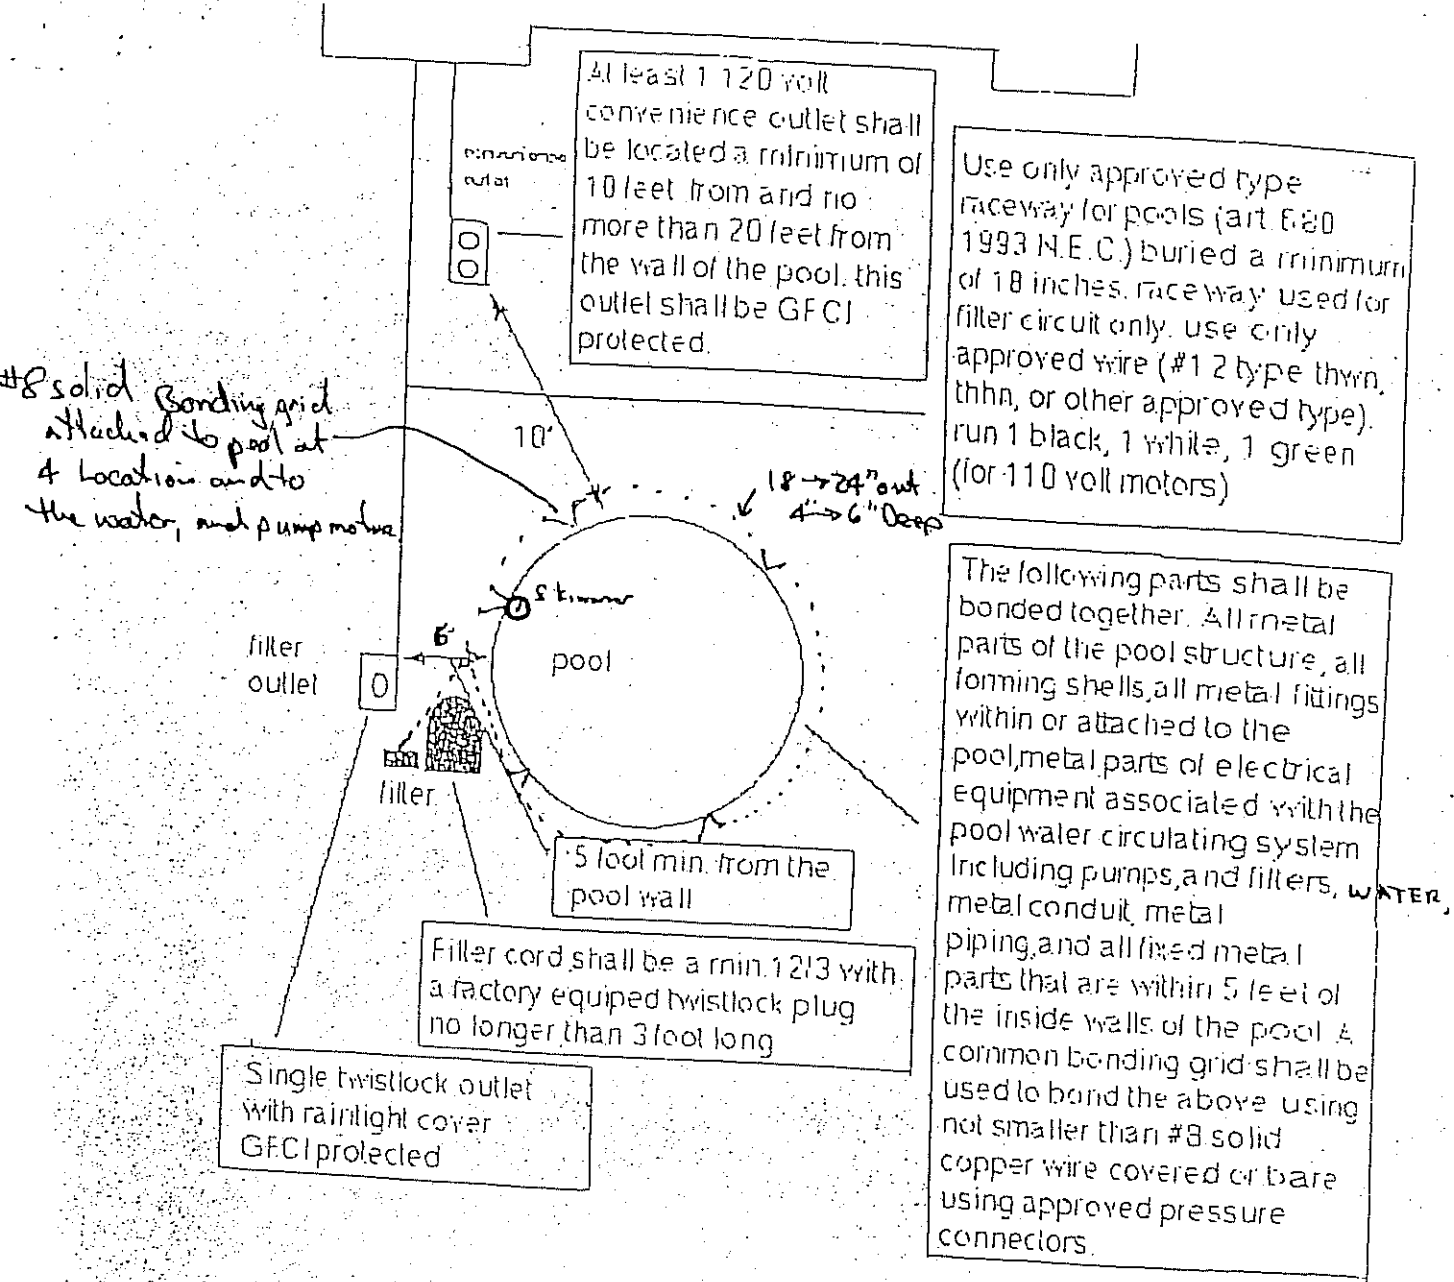 At least 1 120 volt
convenience outlet shall
be located a minimum of
10 feet from and no
more than 20 feet from
the wall of the pool. this
outlet shall be GFCI
protected.
outlet
Use only approved type
raceway for pools (art. 680
1993 N.E.C.) buried a minimum
of 18 inches. raceway used for
filter circuit only. use only
approved wire (#12 type thwn,
thhn, or other approved type).
run 1 black, 1 white, 1 green
(for 110 volt motors)
#8 solid Bonding grid
attached to pool at
4 Location and to
the water, and pump motor
10'
18 → 24" out
4" → 6" Deep
Skimmer
pool
filter
outlet
filter
5 foot min. from the
pool wall
Filter cord shall be a min. 12/3 with
a factory equiped twistlock plug
no longer than 3 foot long
Single twistlock outlet
with raintight cover
GFCI protected
The following parts shall be
bonded together. All metal
parts of the pool structure, all
forming shells, all metal fittings
within or attached to the
pool, metal parts of electrical
equipment associated with the
pool water circulating system
Including pumps, and filters, WATER,
metal conduit, metal
piping, and all fixed metal
parts that are within 5 feet of
the inside walls of the pool. A
common bonding grid shall be
used to bond the above using
not smaller than #8 solid
copper wire covered or bare
using approved pressure
connectors.